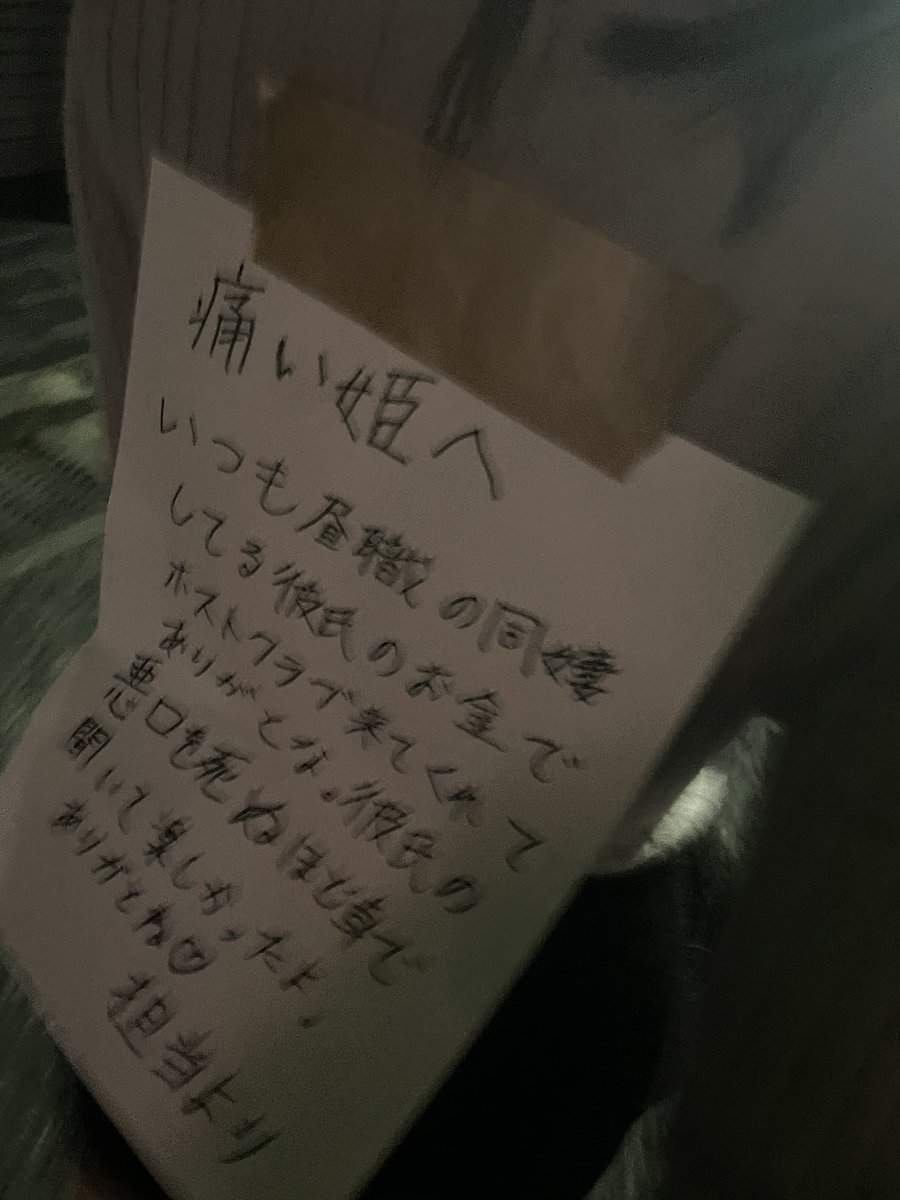 痛い姫へ
いつも昼職の同棲
してる彼氏のお金で
ホストクラブ来てくれて
ありがとな。彼氏の
悪口を死ぬほど卓で
聞いて楽しかったよ。
ありがとね♡
担当より